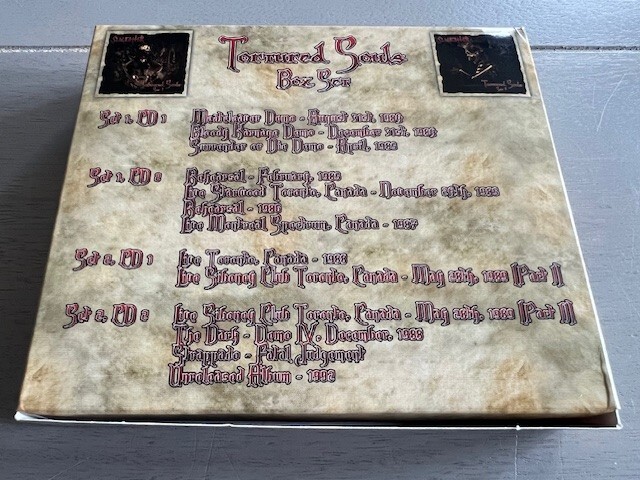 Tortured Souls
Box Set
Set 1, CD 1
Meticleaver Demo - August 21st, 1984
Bloody Karnage Demo - December 21st, 1984
Surrender or Die Demo - April, 1985
Set 1, CD 2
Rehearsal - February, 1985
Live Starwood Toronto, Canada - December
Rehearsal - 1986
Live Montreal Spectrum, Canada - 1987
Set 2, CD 1
Live Toronto, Canada - 1988
Live Siboney Club Toronto, Canada - May 1989 (Part I)
Set 2, CD 2
Live Siboney Club Toronto, Canada - May 1989 (Part II)
The Dark - Demo IV, December, 1988
Strappado - Fatal Judgement
Unreleased Album -